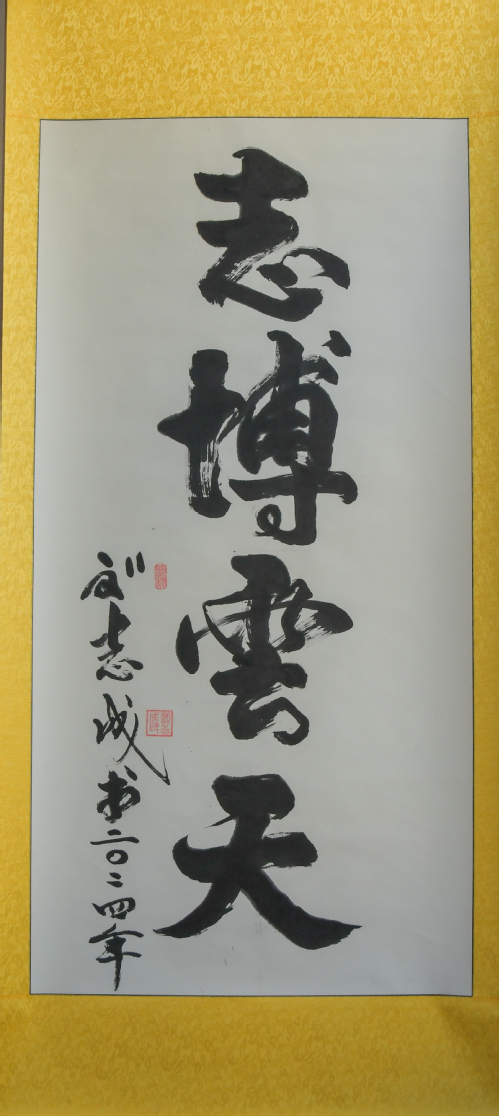 志博雲天
刘志成书二〇二四年